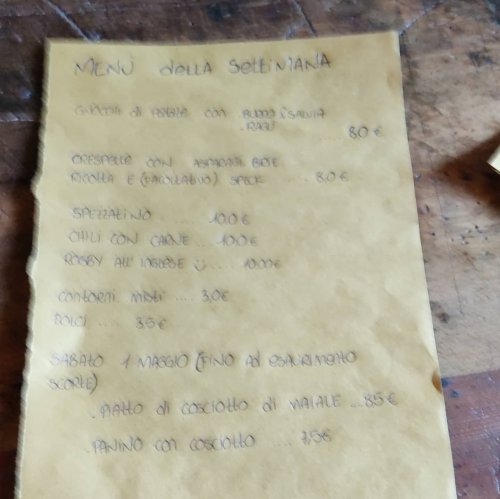 MENÙ della SettiMANA
GNOCCHI di PATATE con .BURRO E SALVIA
.RAGÙ ..... 8.0 €
CRESPELLE CON ASPARAGI BRIE
RICOTTA E (FACOLTATIVO) SPECK ..... 8.0 €
SPEZZATINO ..... 10.0 €
CHILI CON CARNE ... 10.0 €
ROSBY ALL'INGLESE ..... 10.00 €
contorni misti .... 3.0 €
DOLCI .... 3.5 €
SABATO 1 MAGGIO (FINO Ad esaurimento
SCORTE)
.PIATTO di cosciotto di MAIALE ...8.5 €
.PANINO con cosciotto .... 7.5 €